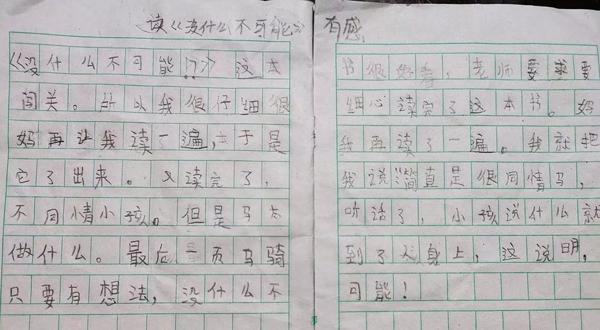 读《没什么不可能》有感
《没什么不可能!?》这本书很好看,老师要求要
闯关。所以我很仔细很细心读完了这本书。妈
妈再让我读一遍,于是我再读了一遍。我就把
它了出来。又读完了,我说:“简直是很同情马,
不同情小孩。但是马太听话了,小孩说什么就
做什么。最后一页马骑到了人身上,这说明,
只要有想法,没什么不可能!